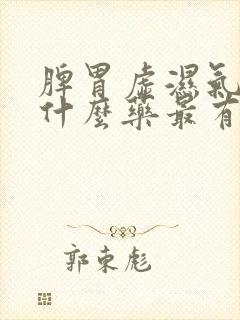 脾胃虛濕氣
什麼藥最有
郭东彪